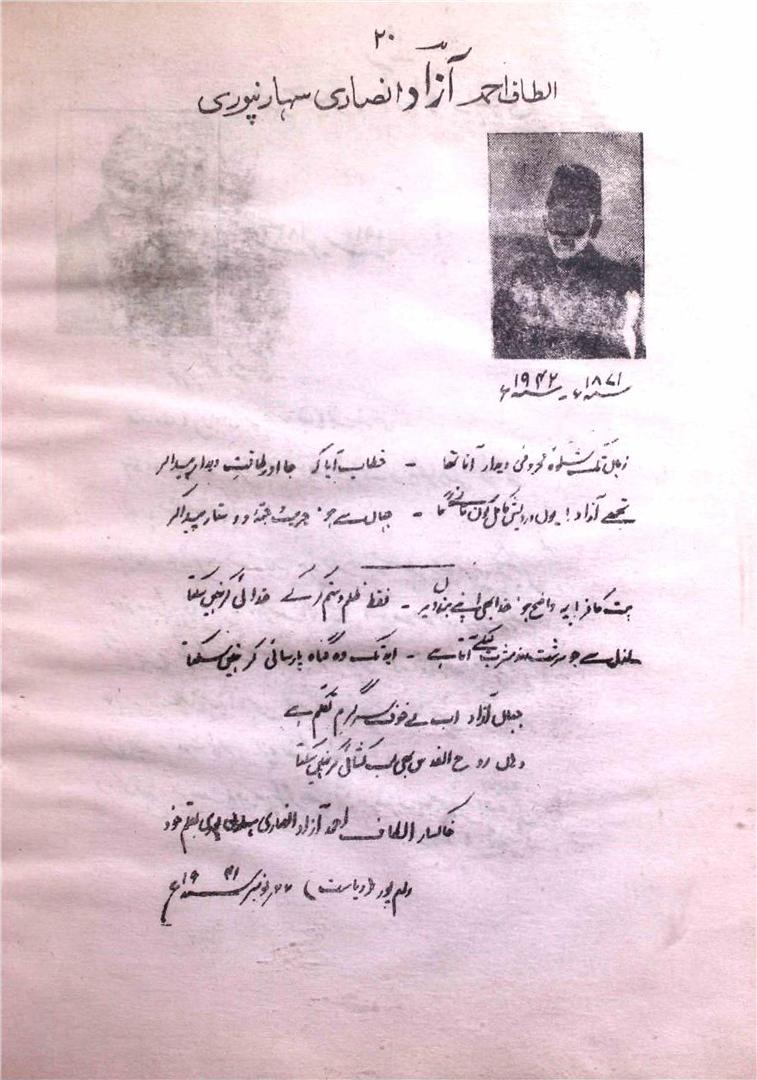 ۲۰
الطاف احمد آزاد انصاری سہارنپوری
۱۸۷۱ء - ۱۹۴۲ء
زباں تک شکوۂ محرومی دیدار آنا تھا - خطاب آیا کہ جا اور طاقتِ دیدار پیدا کر
تجھے آزاد! یوں درویش کامل کون مانے گا - جہاں سے جبہ و دستار پیدا کر
بت کافر پہ واضح ہو خدا بھی اپنے بندوں پر - فقط ظلم و ستم کر کے خدائی کر نہیں سکتا
سے جو مشرب آتا ہے - اب تک وہ گناہ پارسائی کر نہیں سکتا
جہاں آزاد اب بے خوف سرگرمِ تکلم ہے
وہاں روح القدس بھی لب کشائی کر نہیں سکتا
خاکسار الطاف احمد آزاد انصاری سہارنپوری بقلم خود
رام پور (ریاست) ۲۶ نومبر ۱۹۴۱ء